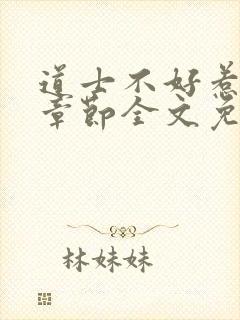 道士不好惹
章节全文免
林妹妹